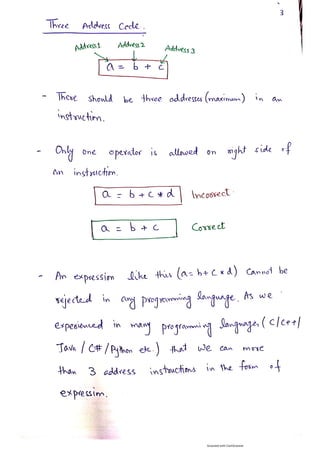 3
Three Address Code.
Address1 Address2 Address3
a = b + c
- There should be three addresses (maximum) in an
instruction.
- Only one operator is allowed on right side of
an instruction.
a = b + c * d Incorrect
a = b + c Correct
- An expression like this (a = b + c * d) cannot be
rejected in any programming language. As we
experienced in many programming languages (C/C++/
Java / C# / Python etc.) that we can more
than 3 address instructions in the form of
expression.
Scanned with CamScanner